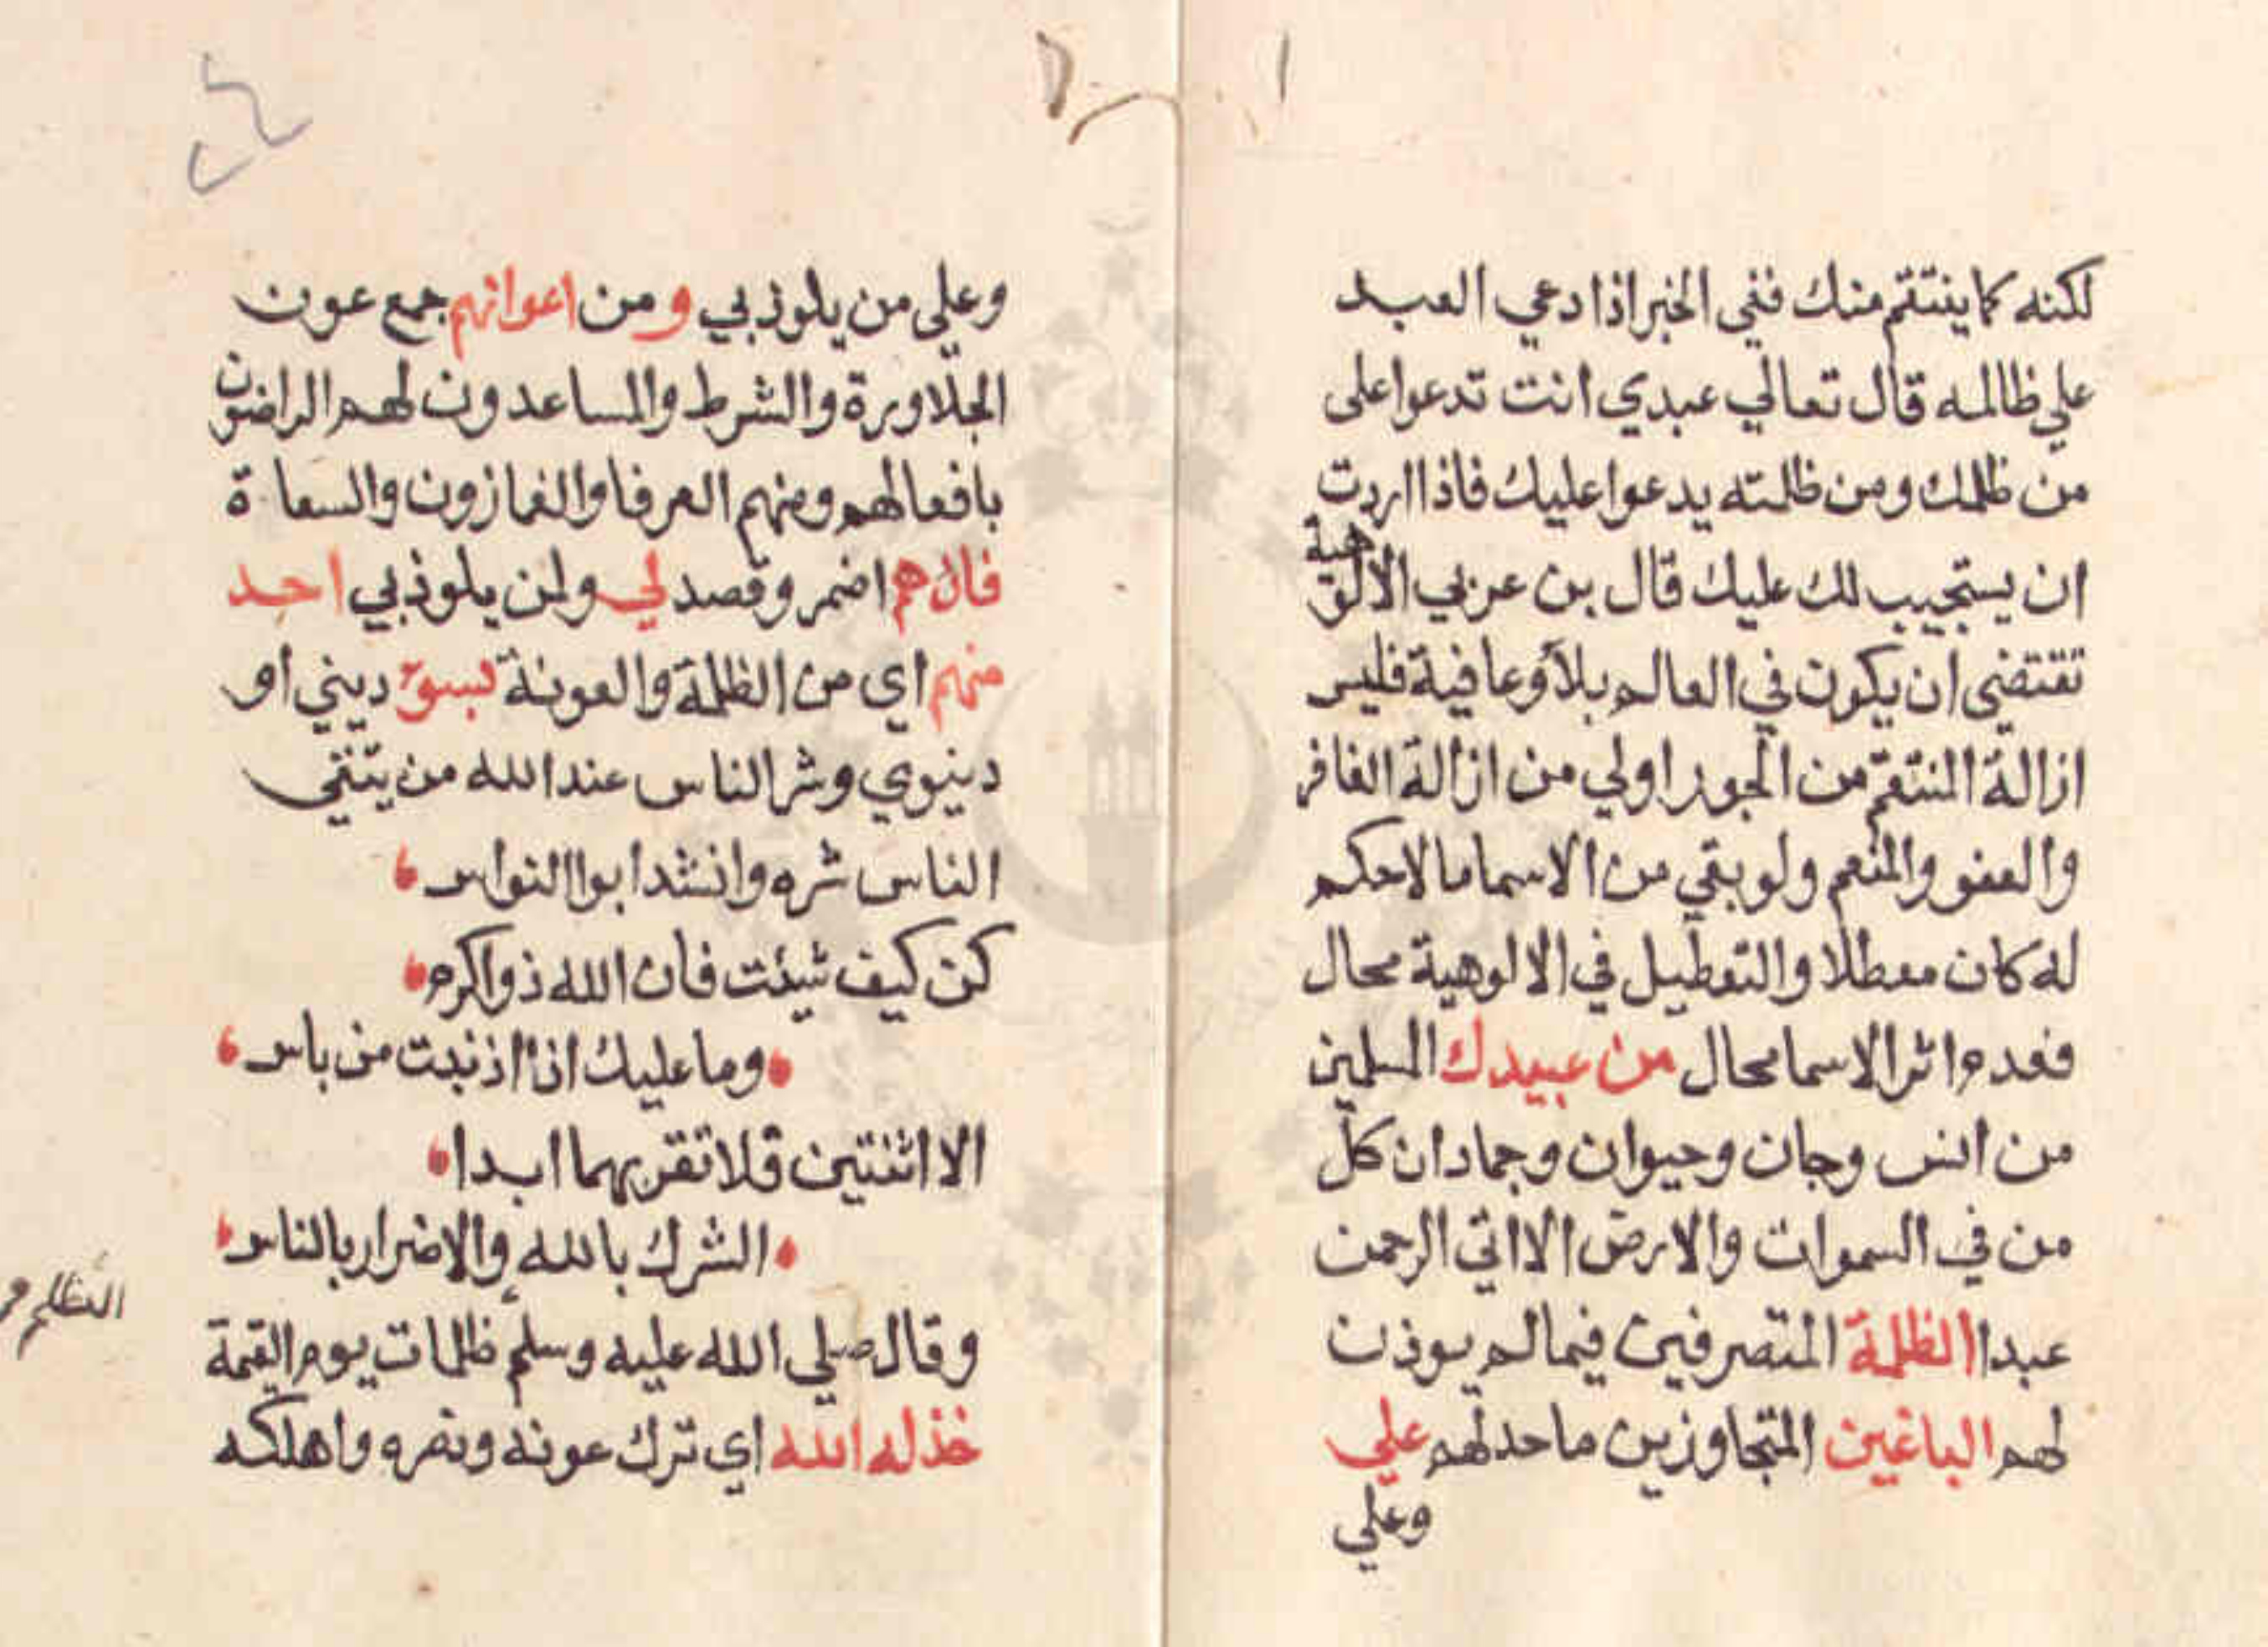 لكنه كما ينتقم منك ففي الخبر اذا دعي العبد
علي ظالمه قال تعالي عبدي انت تدعوا على
من ظلمك ومن ظلمته يدعوا عليك فاذا اردت
ان يستجيب لك عليك قال بن عربي الالوهية
تقتضي ان يكون في العالم بلاء وعافية فليس
ازالة المنتقم من الجور اولي من ازالة الغافر
والعفو والمنعم ولو بقي من الاسما ما لا حكم
له كان معطلا والتعطيل في الالوهية محال
فعدم اثر الاسما محال من عبيدك المسلمين
من انس وجان وحيوان وجماد ان كل
من في السموات والارض الا اتي الرحمن
عبدا الظلمة المتصرفين فيما لم يوذن
لهم الباغين المتجاوزين ما حد لهم علي
وعلي
وعلي من يلوذ بي ومن اعوانهم جمع عون
الجلاوزة والشرط والمساعدون لهم الراضون
بافعالهم ومنهم العرفا والغمازون والسعاة
فان هم اضمر وقصد لي ولمن يلوذ بي احد
منهم اي من الظلمة والعونة بسوء ديني او
دينوي وشر الناس عند الله من يتقي
الناس شره وانشد ابوا النواس
كن كيف شيئت فان الله ذوا كرم
وما عليك اذا اذنبت من باس
الا اثنتين فلا تقربهما ابدا
الشرك بالله والاضرار بالناس
وقال صلي الله عليه وسلم ظلمات يوم القيمة
الظلم
خذله الله اي ترك عونه ونصره واهلكه